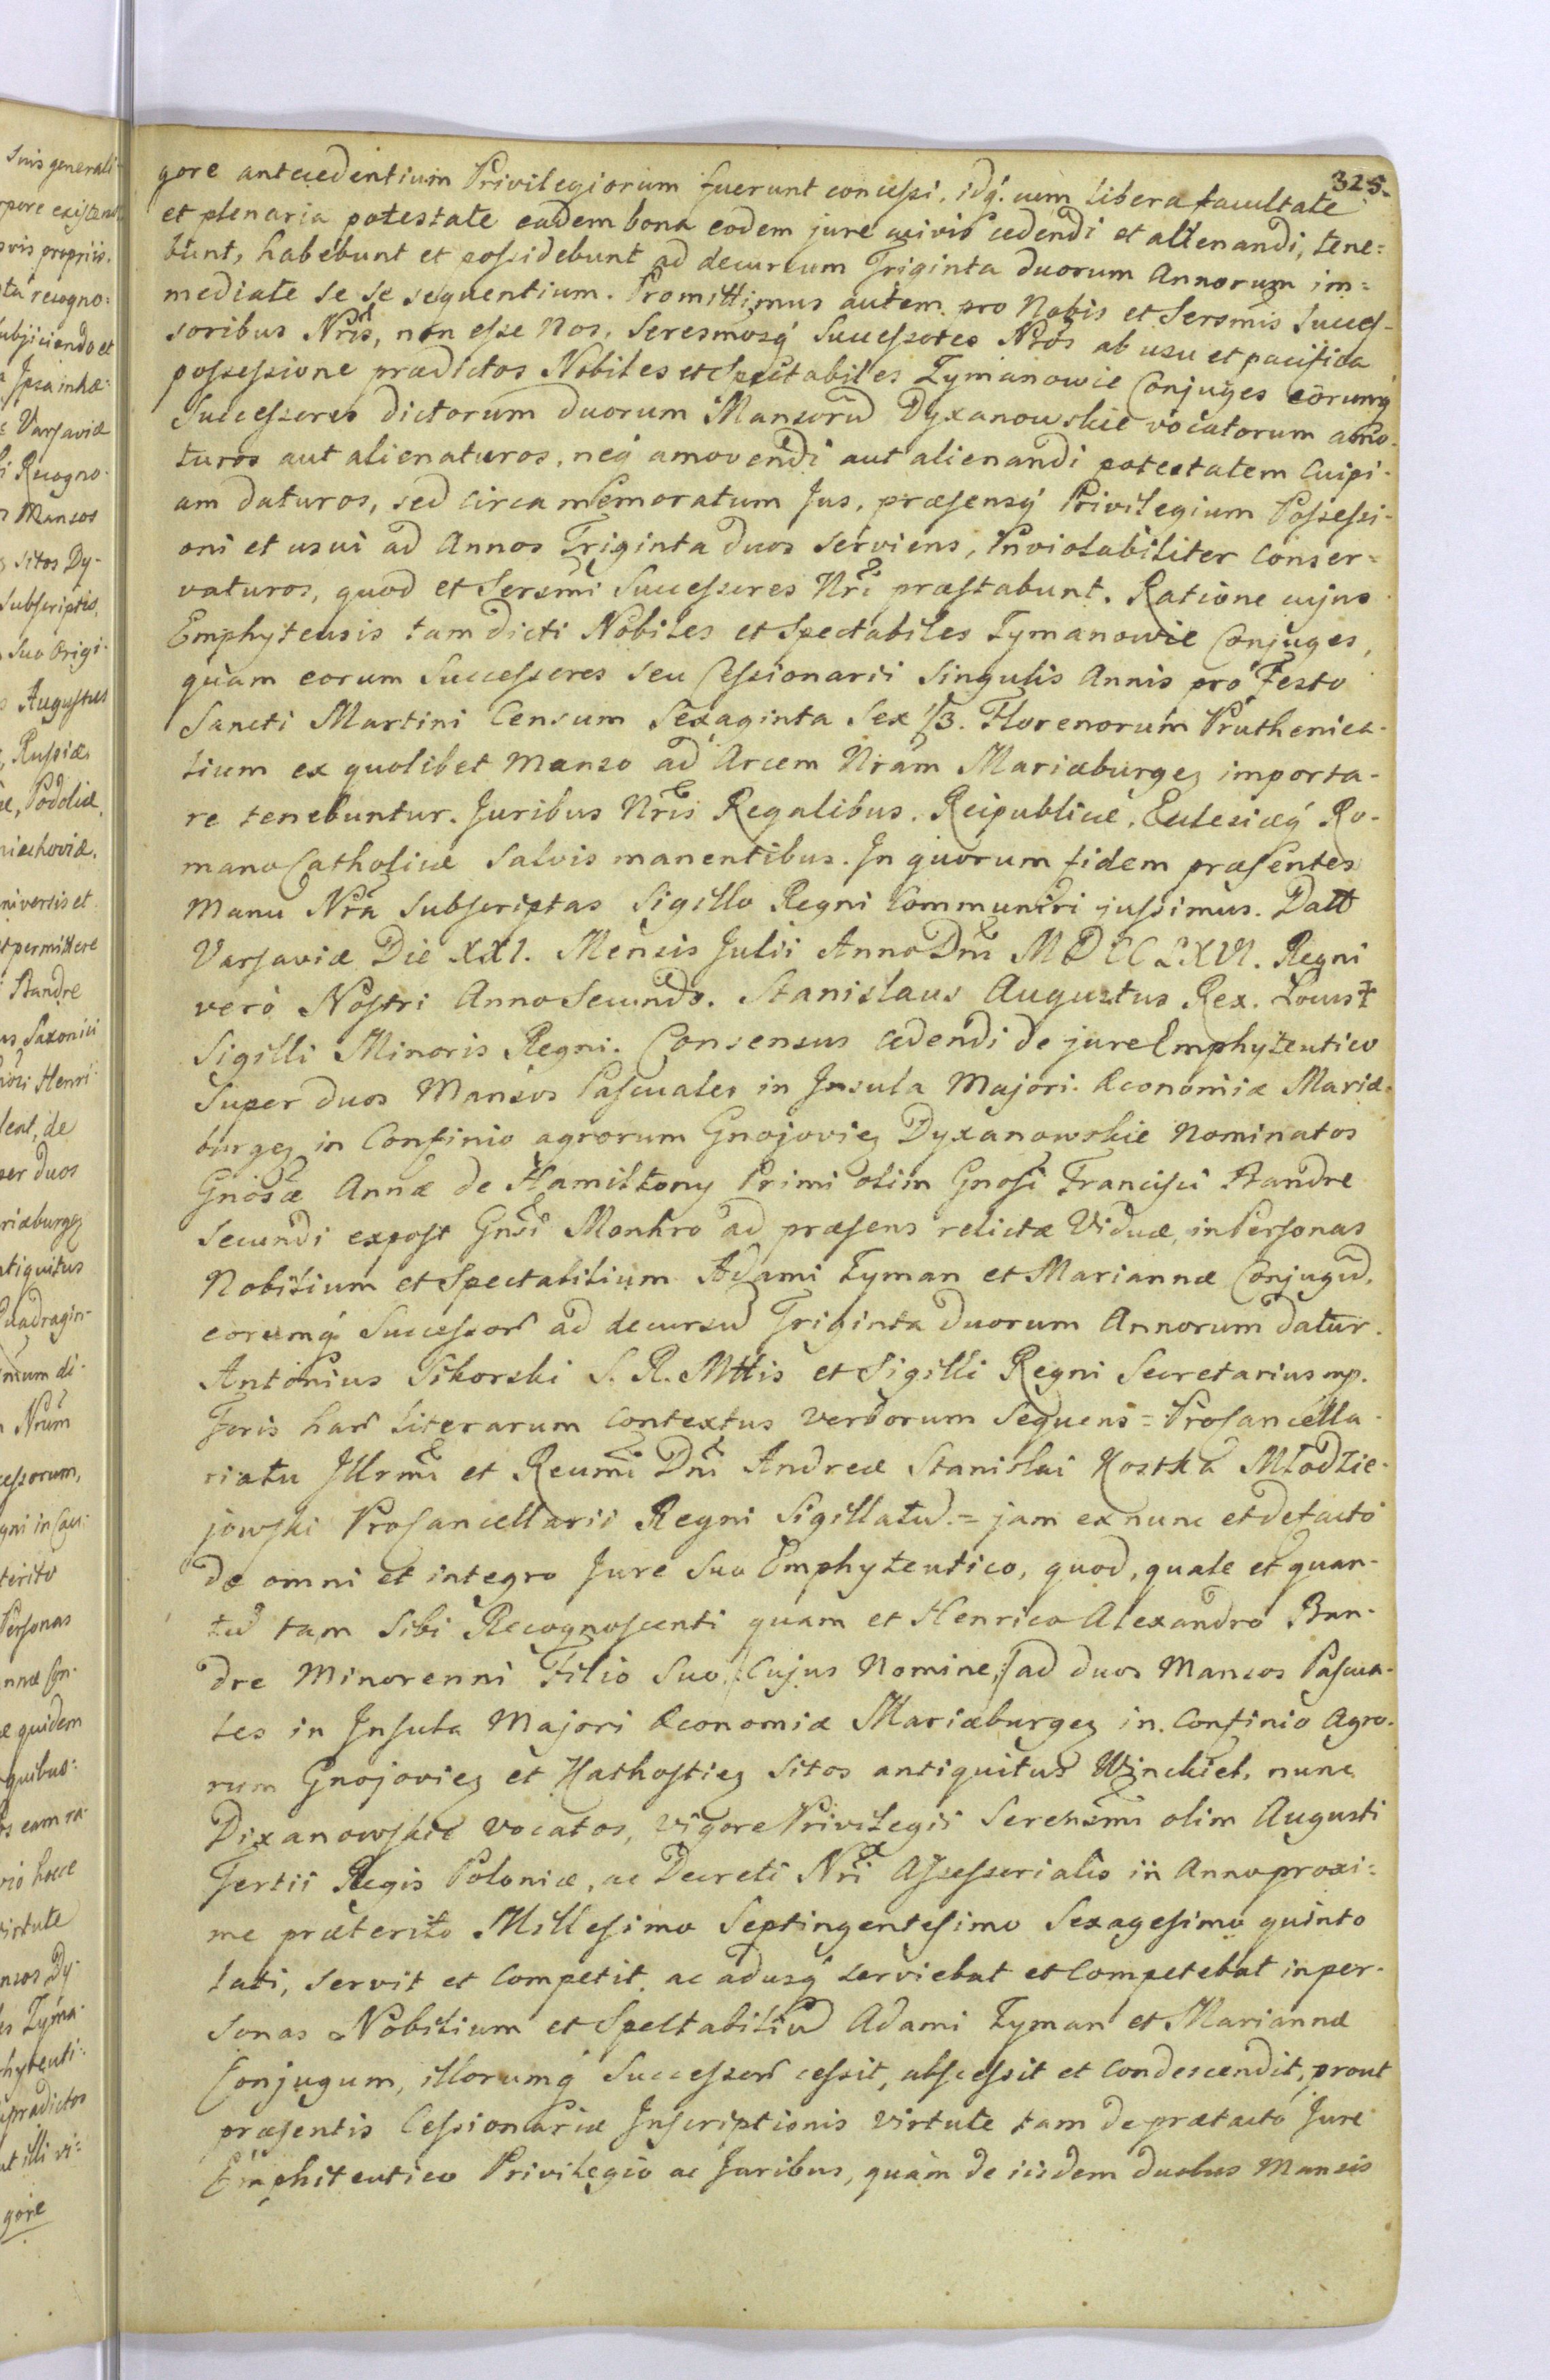 325.
gore antecedentium Privilegiorum fuerunt concessi, idq́. cum libera facultate
et plenaria potestate eadem bona eodem jure cuivis cedendi et alienandi, tene=
bunt, habebunt et possidebunt ad decursum Triginta duorum Annorum im=
mediate se se sequentium. Promittimus autem pro Nobis et Sersmis Succes-
soribus Nris, non esse Nos, Seresmosq́ Successores Nros ab usu et pacifica
possessione prædictos Nobiles et Spectabiles Tymanowie Conjuges eorumq́
Successores dictorum duorum Mansorũ Dyxanowskie vocatorum amo-
turos aut alienaturos, neq́ amovendi aut alienandi potestatem Cuipi-
am daturos, sed circa memoratum Jus, præsensq́ Privilegium Possessi-
oni et usui ad Annos Triginta duos serviens, Inviolabiliter Conser=
vaturos, quod et Sersmi Successores Nri præstabunt. Ratione cujus
Emphyteusis tam dicti Nobiles et Spectabiles Tymanowie Conjuges,
quàm eorum Successores seu Cessionarii Singulis Annis pro Festo
Sancti Martini Censum Sexaginta Sex 1/3. Florenorum Pruthenica-
lium ex quolibet Manso ad Arcem Nram Mariæburgeƶ importa-
re tenebuntur. Juribus Nris Regalibus, Reipublicæ, Eclesiæq́ Ro-
mano Catholicæ salvis manentibus. In quorum fidem præsentes
Manu Nra Subscriptas Sigillo Regni Communiri jussimus. Datt
Varsaviæ Die XXI. Mensis Julii Anno Dni MDCCLXVI. Regni
verò Nostri Anno Secundo. Stanislaus Augustus Rex. Locus
Sigilli Minoris Regni. Consensus cedendi de jure Emphyteutico
Super duos Mansos Pascuales in Insula Majori Æconomiæ Mariæ-
burgeƶ in Confinio agrorum Gnojovieƶ Dyxanowskie Nominatos
Gnosæ Annæ de Hamiltony Primi olim Gnosi Francisci Bandre
Secundi expost Gnsi Monkro ad præsens relictæ Viduæ, in Personas
Nobilium et Spectabilium Adami Tyman et Mariannæ Conjugũ,
eorumq́ Successor ad decursũ Triginta duorum Annorum datur.
Antonius Sikorski S. R. Mttis et Sigilli Regni Secretarius mp.
Foris har literarum Contextus verborum Sequens = Procancella-
riatu Illrmi et Reumi Dni Andreæ Stanislai Kostka Młodzie-
jowski Procancellarii Regni Sigillatũ. = jam ex nunc et de facto
de omni et integro Jure Suo Emphyteutico, quod, quale et quan-
tũ tam Sibi Recognoscenti quam et Henrico Alexandro Ban-
dre Minorenni Filio Suo /: Cujus Nomine :/ ad duos Mansos Pascua-
les in Insula Majori Æconomiæ Mariæburgeƶ in Confinio Agro-
rum Gnojovieƶ et Kathostieƶ Sitos antiquitus Winckiel, nunc
Dixanowskie vocatos, vigore Privilegii Serensmi olim Augusti
Tertii Regis Poloniæ, ac Decreti Nri Assessorialis in Anno proxi=
me præterito Millesimo Septingentesimo Sexagesimo quinto
lati, servit et Competit, ac adusq́ serviebat et Competebat in per-
sonas Nobilium et Spectabiliũ Adami Tyman et Mariannæ
Conjugum, illorumq́ Successor cessit, abscessit et Condescendit, prout
præsentis Cessionariæ Inscriptionis Virtute tam de prætacto Jure
Emphiteutico Privilegio ac Juribus, quàm de iisdem duobus Mansis